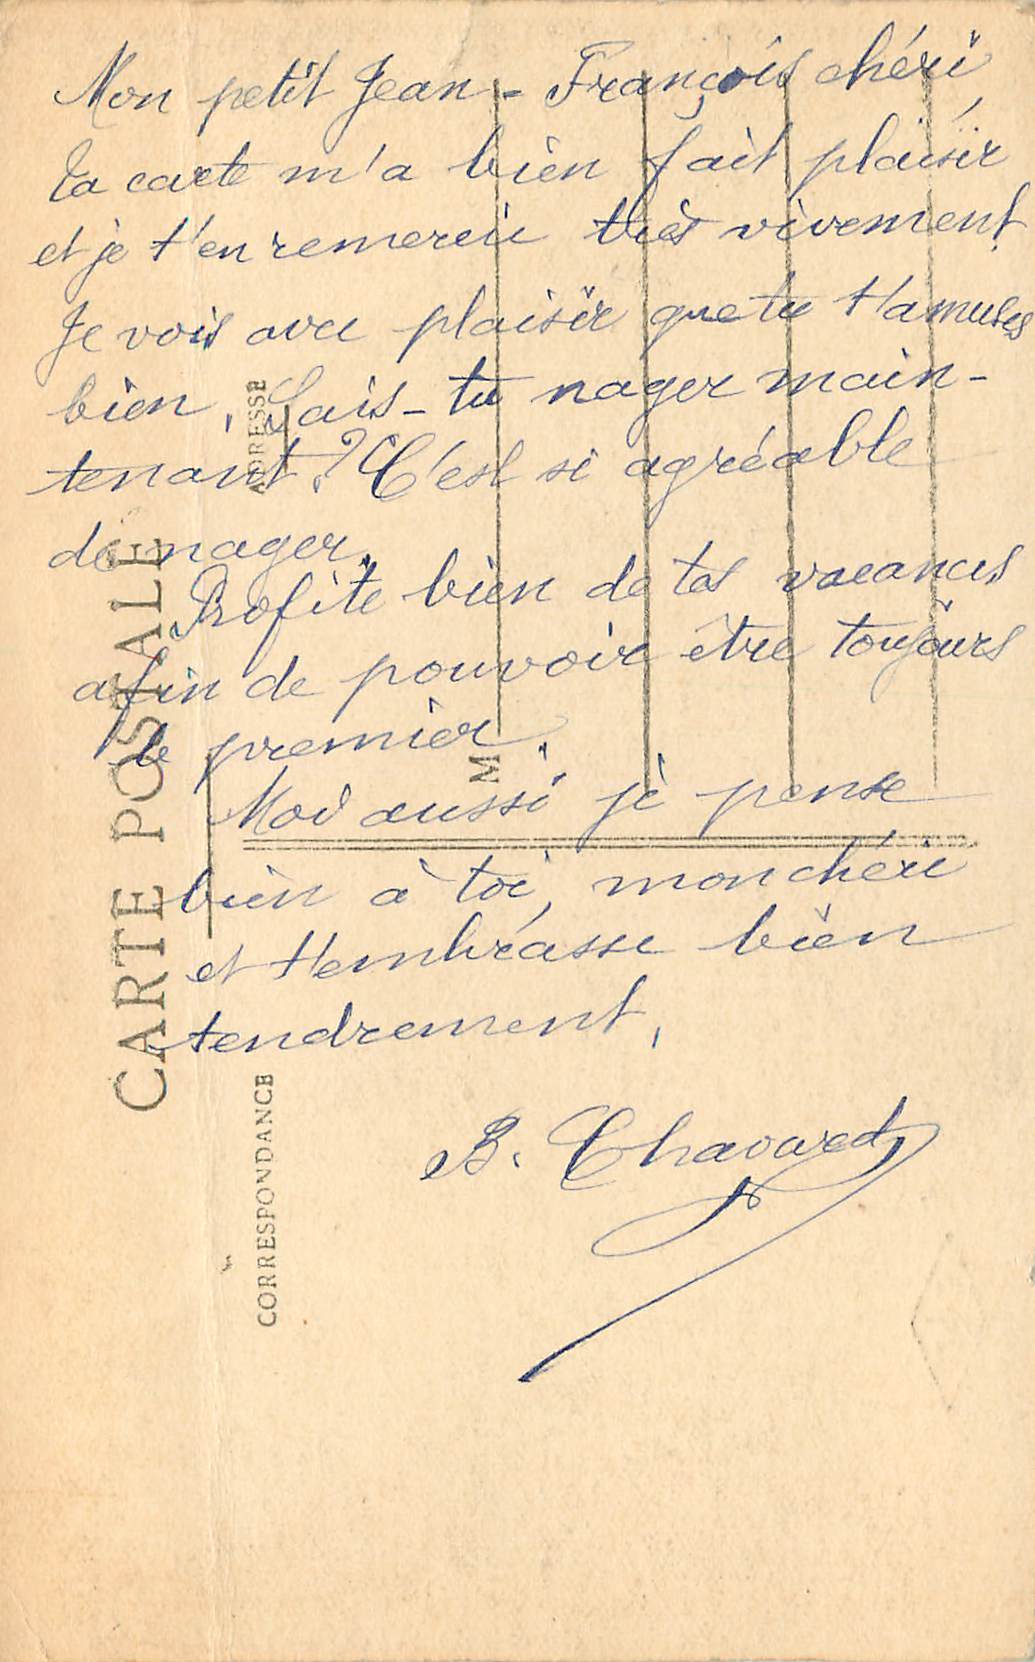 Mon petit Jean-François chéri
Ta carte m'a bien fait plaisir
et je t'en remercie très vivement
Je vois avec plaisir que tu t'amuses
bien. Sais-tu nager main-
tenant ? C'est si agréable
de nager.
Profite bien de tes vacances
afin de pouvoir être toujours
le premier.
Moi aussi je pense
bien à toi, mon chéri
et t'embrasse bien
tendrement,
B. Chavard
CARTE POSTALE
CORRESPONDANCE
ADRESSE
M